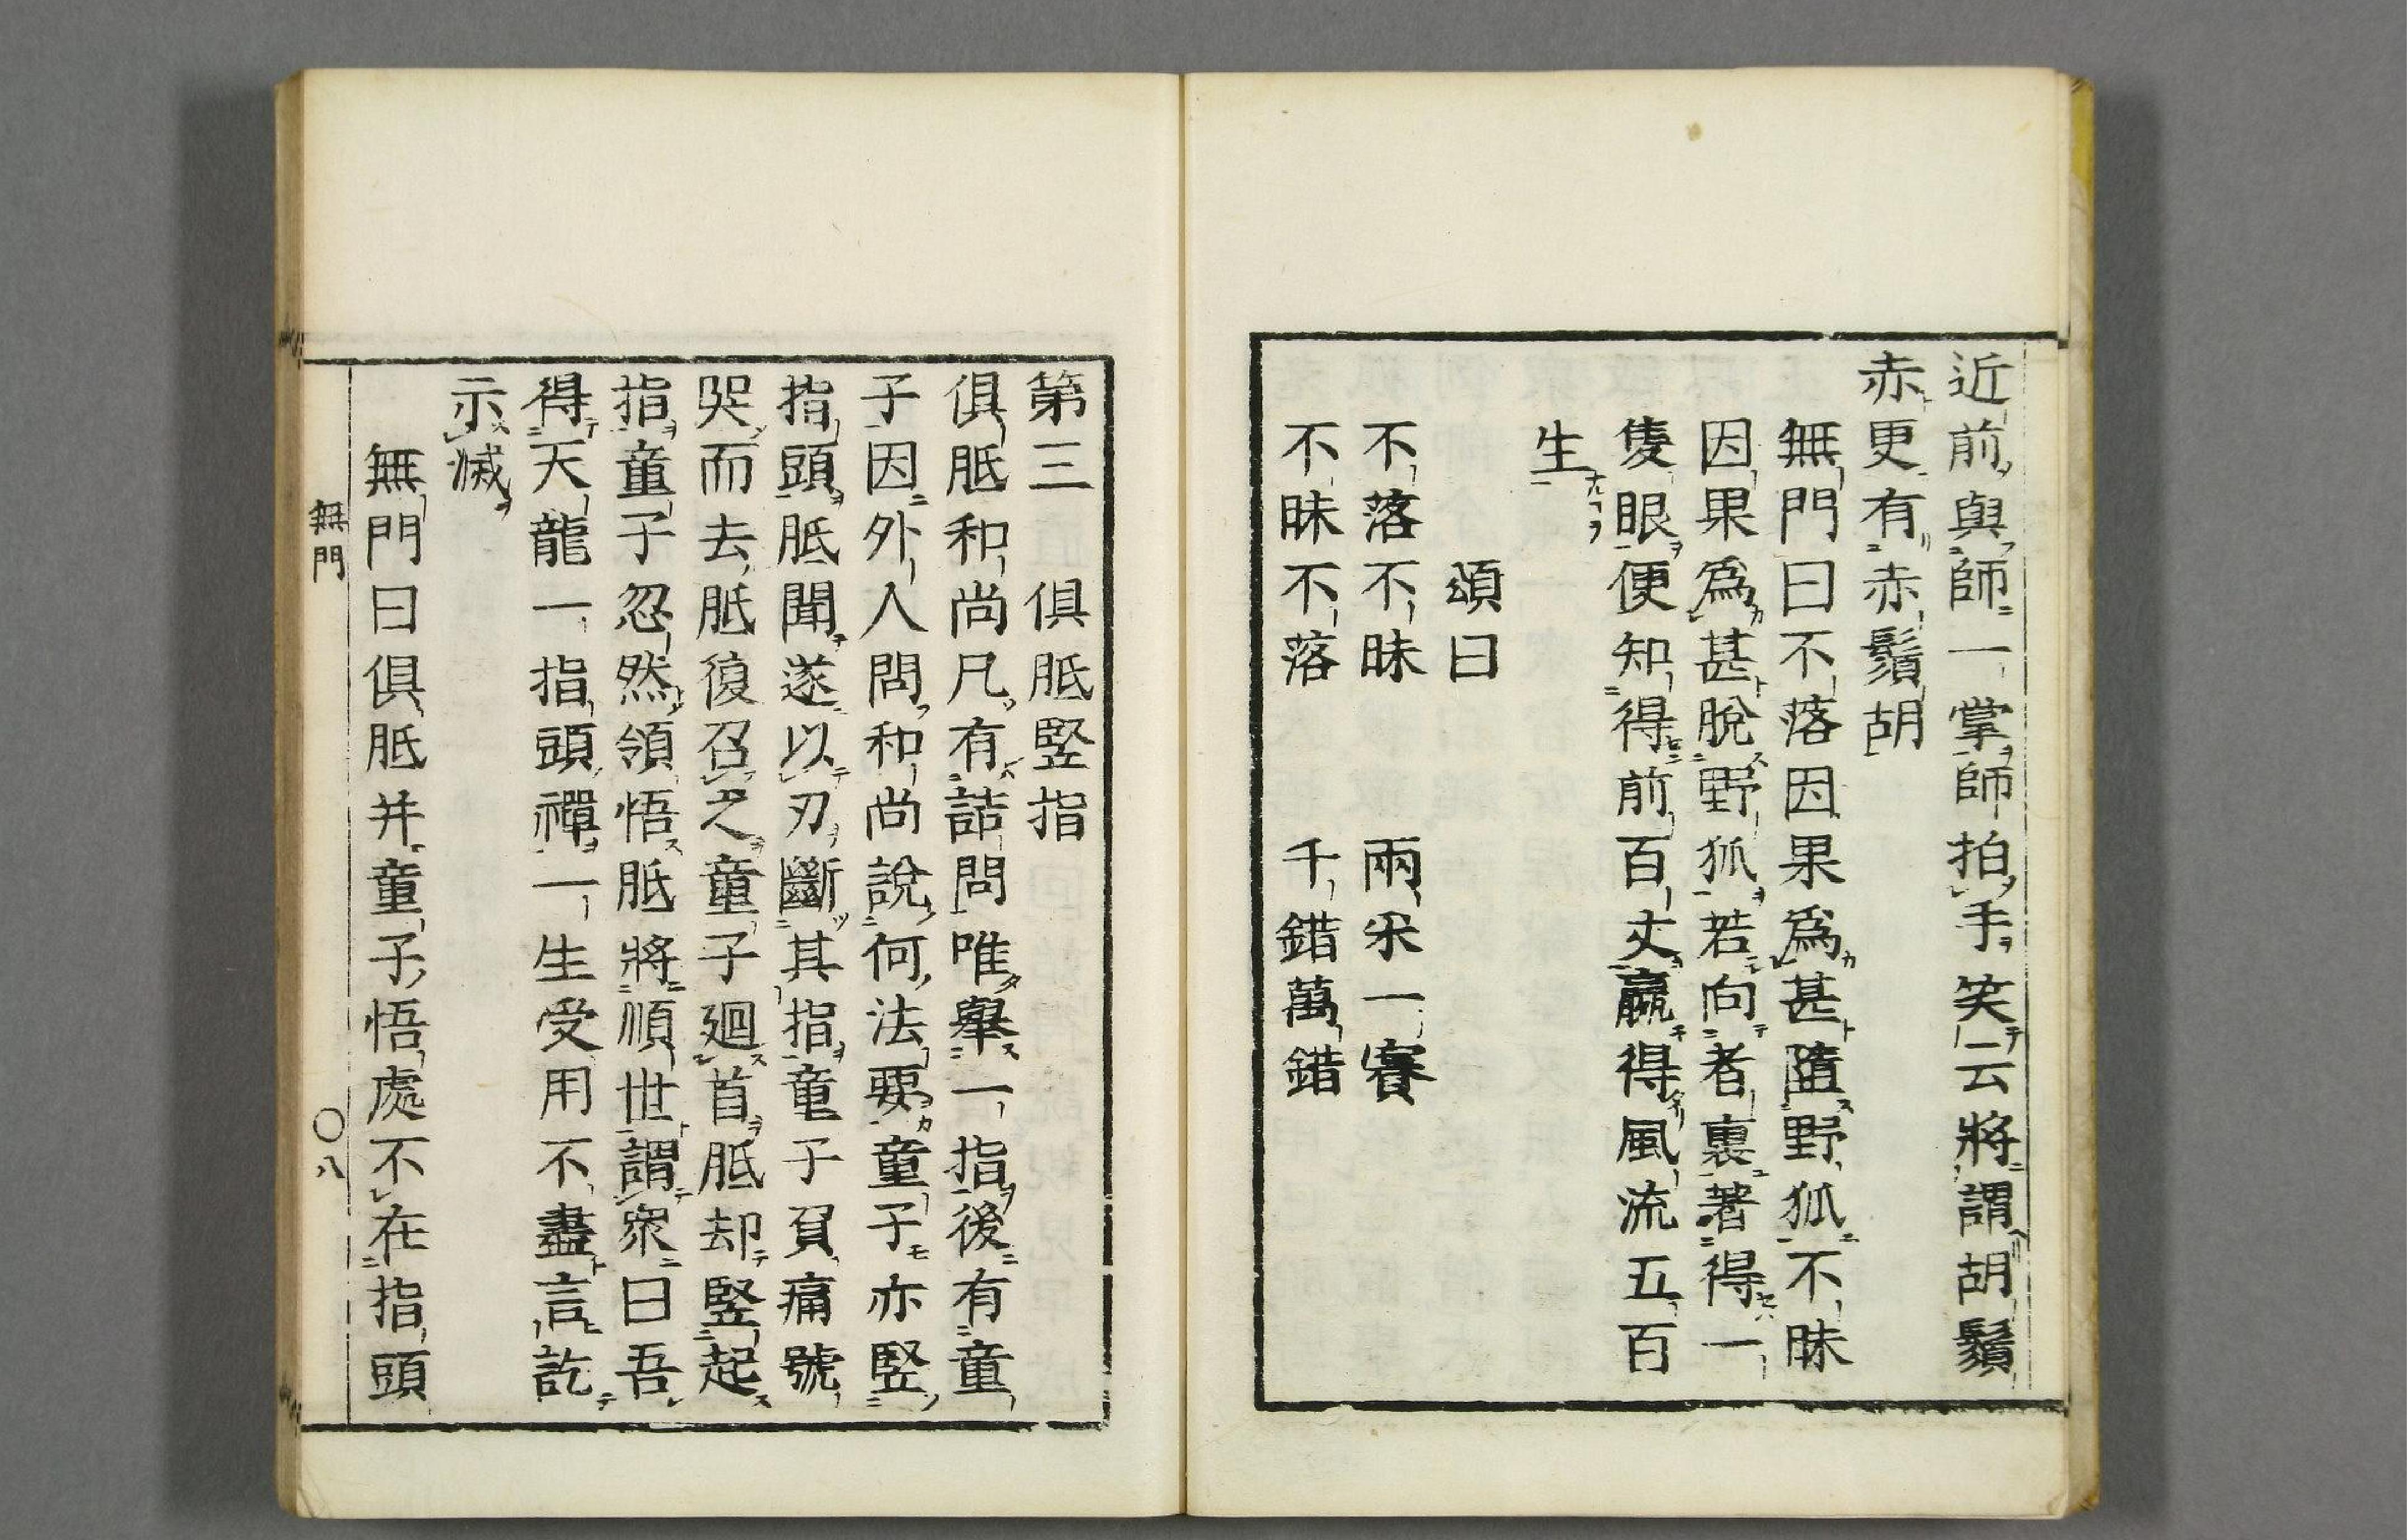 近前與師一掌師拍手笑云將謂胡鬚
赤更有赤鬚胡
無門曰不落因果爲甚墮野狐不昧
因果爲甚脫野狐若向者裏著得一
隻眼便知得前百丈贏得風流五百
生
頌曰
不落不昧　兩采一賽
不昧不落　千錯萬錯
第三　俱胝竪指
俱胝和尚凡有詰問唯舉一指後有童
子因外人問和尚說何法要童子亦竪
指頭胝聞遂以刃斷其指童子負痛號
哭而去胝復召之童子廻首胝却竪起
指童子忽然領悟胝將順世謂衆曰吾
得天龍一指頭禪一生受用不盡言訖
示滅
無門曰俱胝并童子悟處不在指頭
無門　〇八